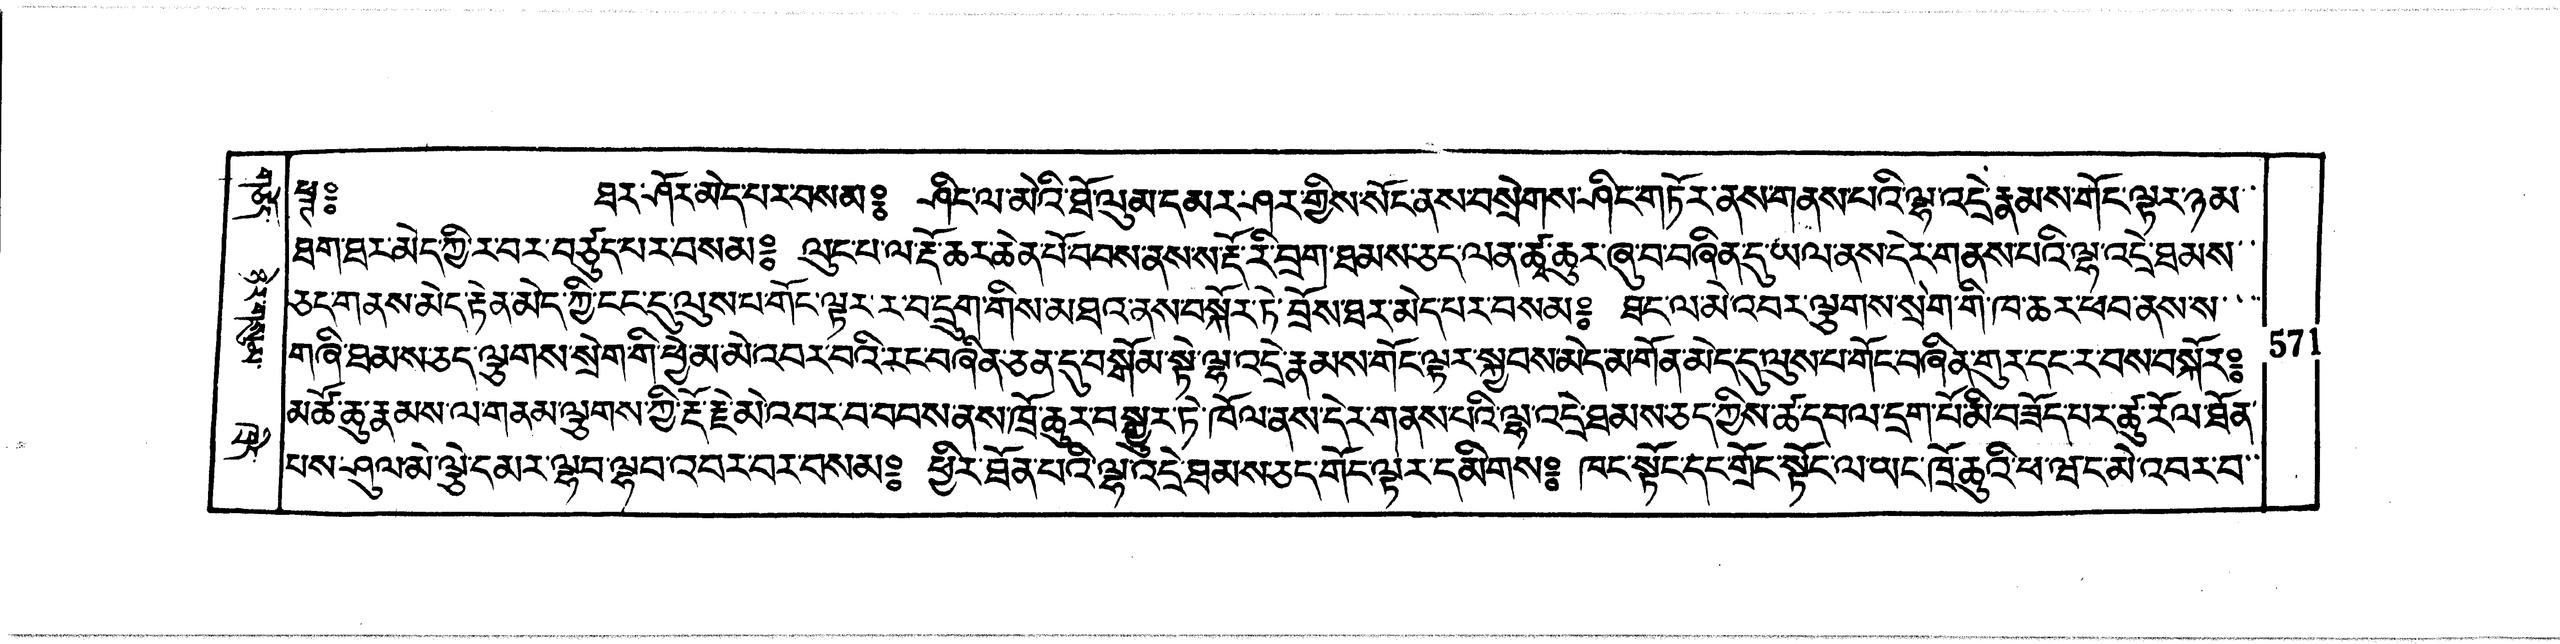 ཕྱཿ ཐར་ཤོར་མེད་པར་བསམཿ ཤིང་ལ་མེའི་ཐོ་ལུམ་དམར་ཤར་གྱིས་སོང་ནས་བསྲེགས་ཤིང་གཏོར་ནས་གནས་པའི་ལྷ་འདྲེ་རྣམས་གོང་ལྟར་ཉམ་
ཐག་ཐར་མེད་ཀྱི་ར་བར་བཙུད་པར་བསམཿ ལུང་པ་ལ་རྡོ་ཆར་ཆེན་པོ་བབས་ནས་ས་རྡོ་རི་བྲག་ཐམས་ཅད་ལན་ཚྭ་ཆུར་ཞུ་བ་བཞིན་དུ་ཡལ་ནས་དེར་གནས་པའི་ལྷ་འདྲེ་ཐམས་
ཅད་གནས་མེད་རྟེན་མེད་ཀྱི་ངང་དུ་ལུས་པ་གོང་ལྟར་ར་བ་དྲུག་གིས་མཐའ་ནས་བསྐོར་ཏེ་བྲོས་ཐར་མེད་པར་བསམཿ ཐང་ལ་མེ་འབར་ལྕགས་སྲེག་གི་ཁ་ཆར་ཕབ་ནས་ས་
གཞི་ཐམས་ཅད་ལྕགས་སྲེག་གི་ཕྱེ་མ་མེ་འབར་བའི་རང་བཞིན་ཅན་དུ་བསྒོམ་སྟེ་ལྷ་འདྲེ་རྣམས་གོང་ལྟར་སྐྱབས་མེད་མགོན་མེད་དུ་ལུས་པ་གོང་བཞིན་གུར་དང་ར་བས་བསྐོརཿ
མཚོ་ཆུ་རྣམས་ལ་གནམ་ལྕགས་ཀྱི་རྡོ་རྗེ་མེ་འབར་བ་བབས་ནས་ཁྲོ་ཆུར་བསྒྱུར་ཏེ་ཁོལ་ནས་དེར་གནས་པའི་ལྷ་འདྲེ་ཐམས་ཅད་ཀྱིས་ཚ་དབལ་དྲག་པོ་མི་བཟོད་པར་ཚུ་རོལ་ཐོན་
པས་ཤུལ་མེ་ལྕེ་དམར་ལྷབ་ལྷབ་འབར་བར་བསམཿ ཕྱིར་ཐོན་པའི་ལྷ་འདྲེ་ཐམས་ཅད་གོང་ལྟར་དམིགསཿ ཁང་སྟོང་དང་གྲོང་སྟོང་ལ་ཡང་ཁྲོ་ཆུའི་ཕ་ཝང་མེ་འབར་བ་
571